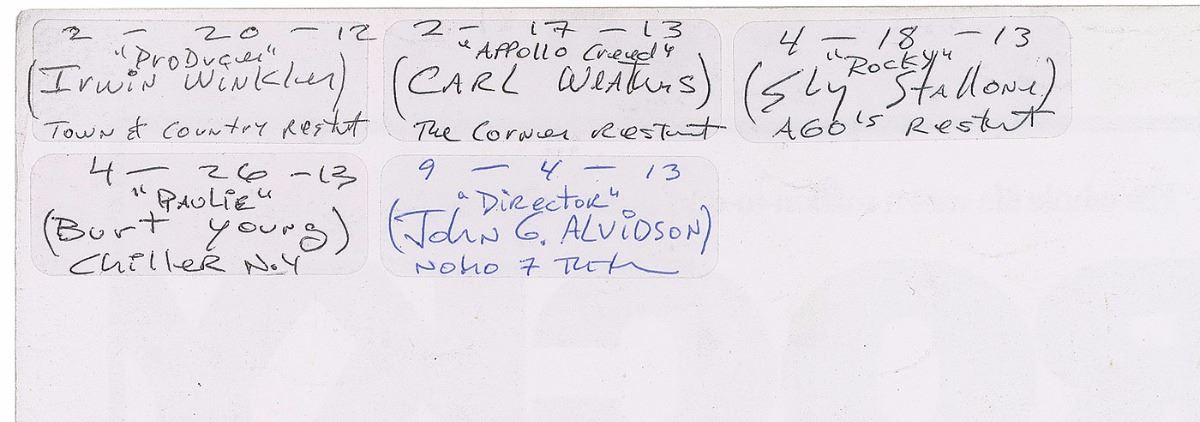 2 - 20 - 12
"Producer"
(Irwin Winkler)
Town & Country Restnt
2 - 17 - 13
"Appollo Creed"
(CARL Weathers)
The Corner Restnt
4 - 18 - 13
"Rocky"
(Sly Stallone)
AGO's Restnt
4 - 26 - 13
"PAULIE"
(Burt Young)
Chiller N.Y
9 - 4 - 13
"Director"
(John G. ALVIDSON)
NoHo 7